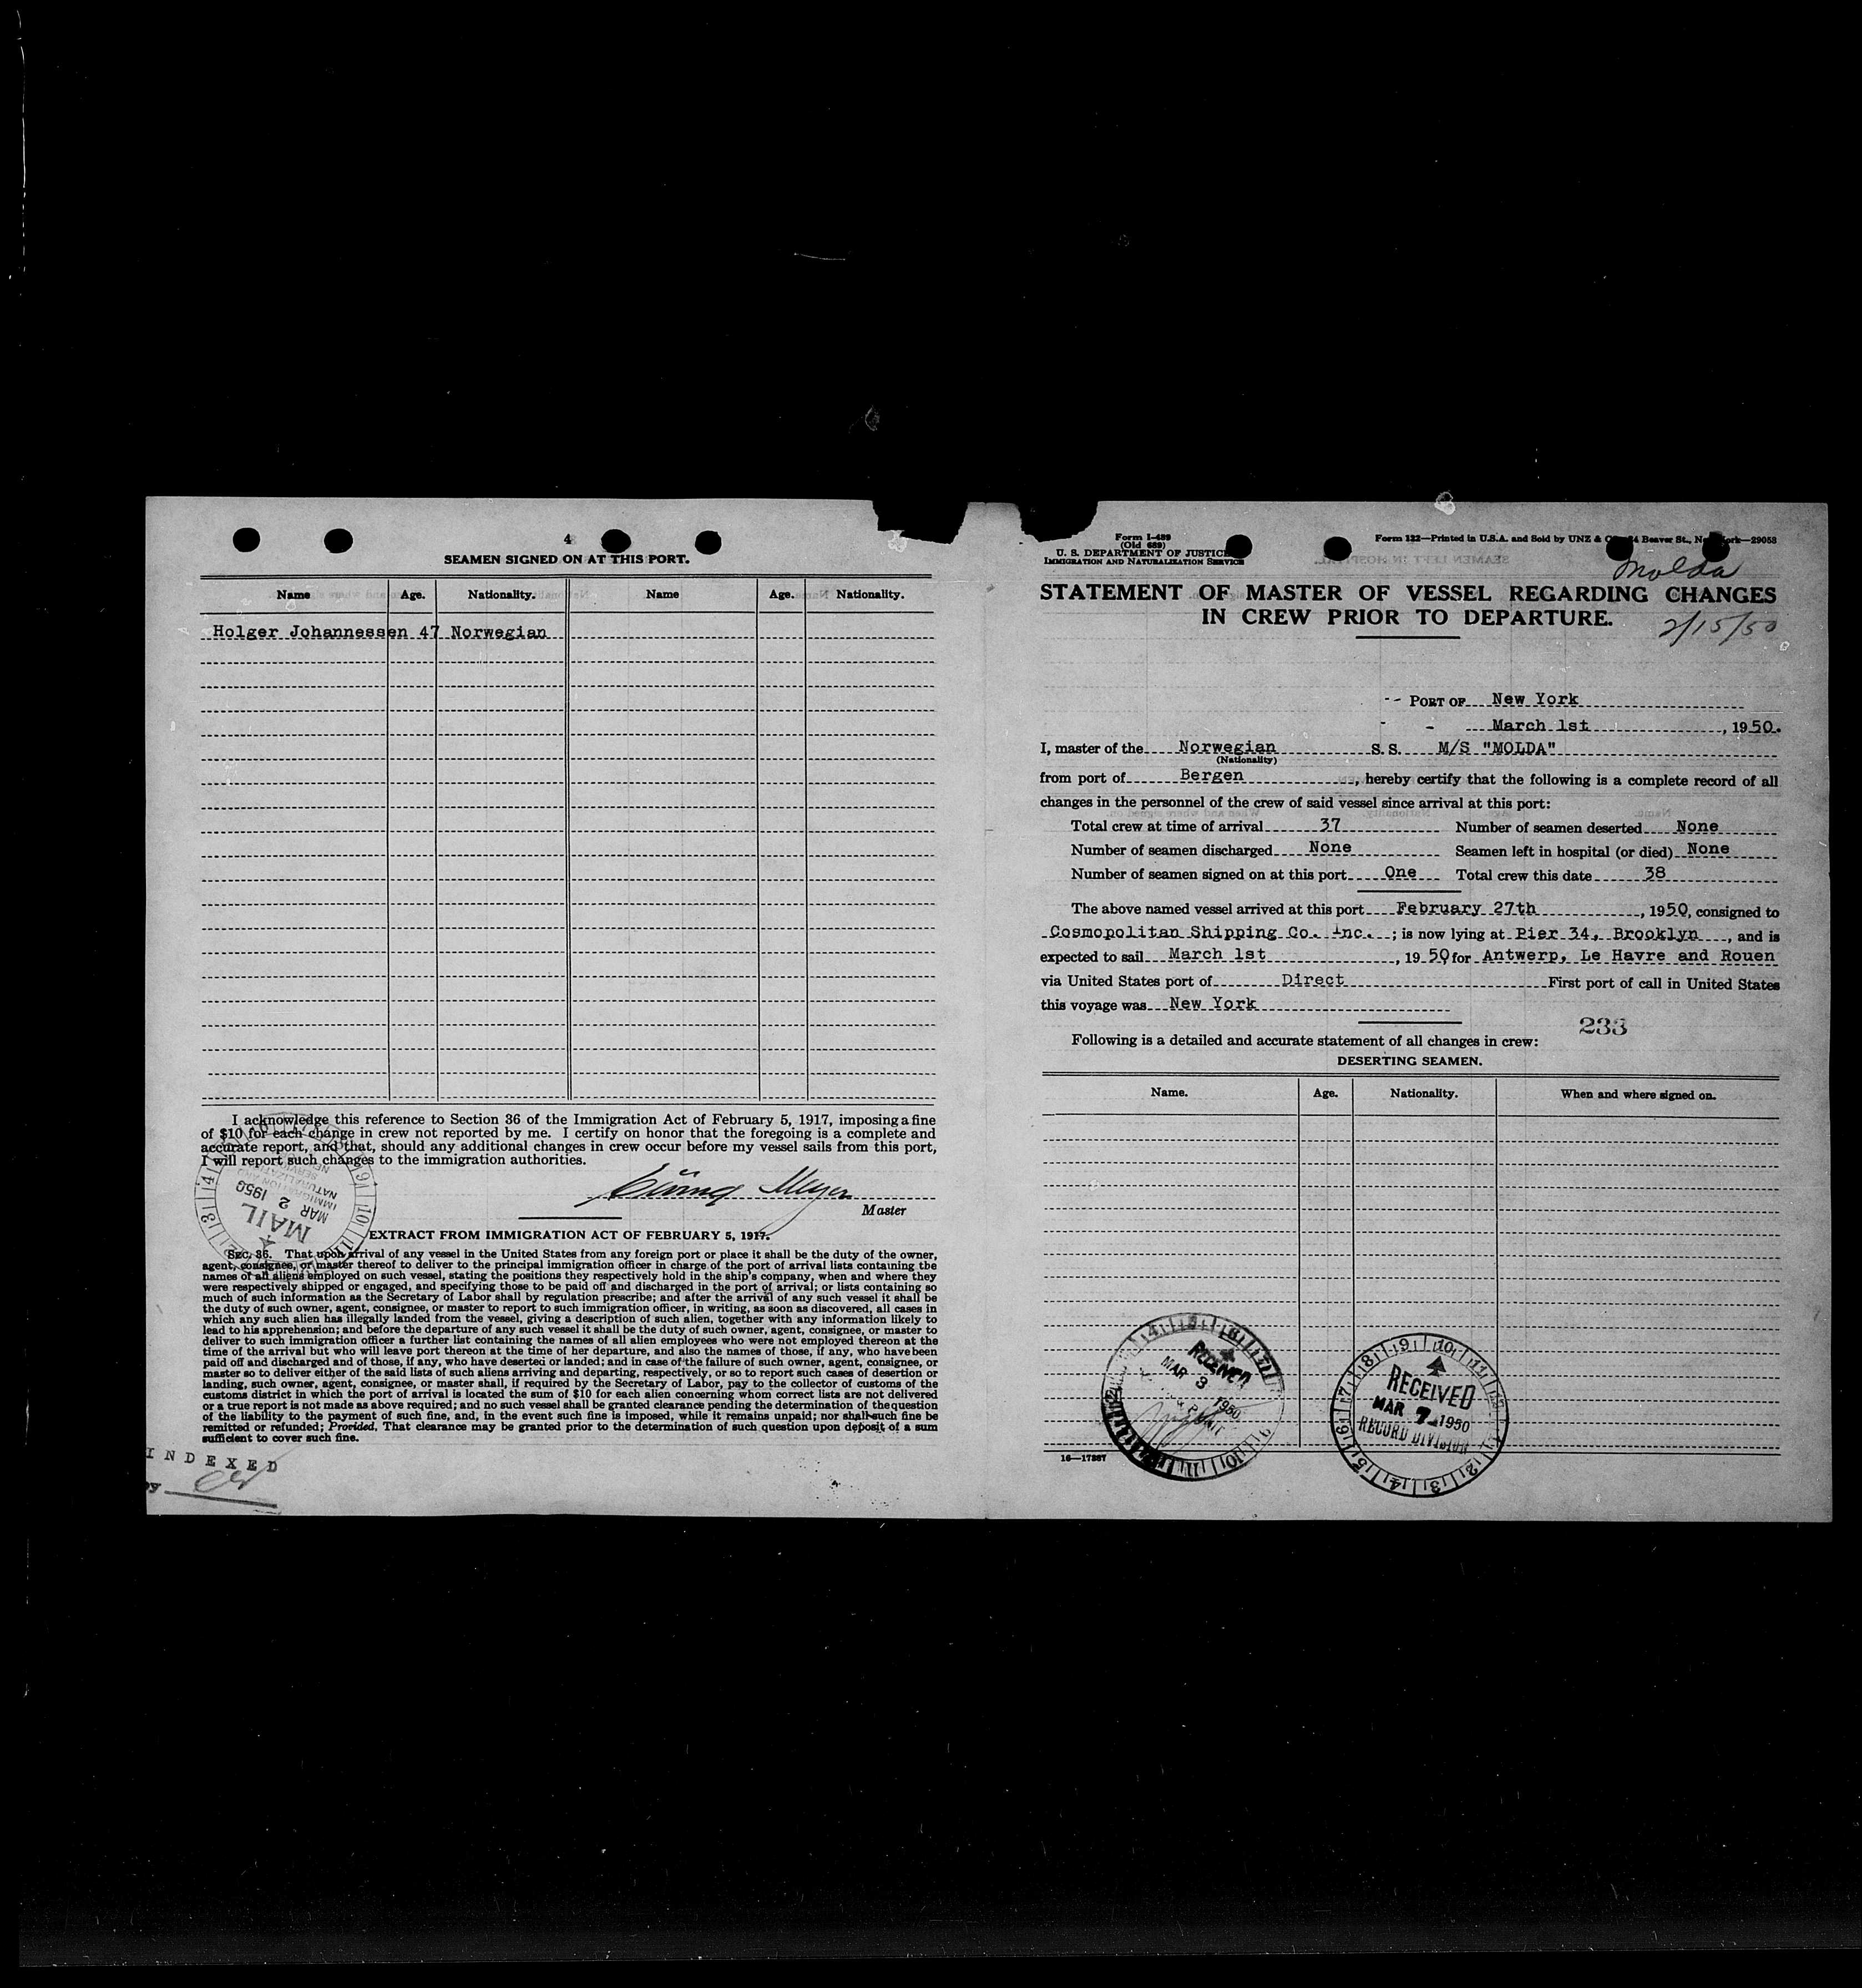 4
SEAMEN SIGNED ON AT THIS PORT.
Name Age. Nationality. Name Age. Nationality.
Holger Johannessen 47 Norwegian
I acknowledge this reference to Section 36 of the Immigration Act of February 5, 1917, imposing a fine
of $10 for each change in crew not reported by me. I certify on honor that the foregoing is a complete and
accurate report, and that, should any additional changes in crew occur before my vessel sails from this port,
I will report such changes to the immigration authorities.
Meyer
Master
MAIL
MAR 2 1950
IMMIGRATION AND
NATURALIZATION
SERVICE
EXTRACT FROM IMMIGRATION ACT OF FEBRUARY 5, 1917.
SEC. 36. That upon arrival of any vessel in the United States from any foreign port or place it shall be the duty of the owner,
agent, consignee, or master thereof to deliver to the principal immigration officer in charge of the port of arrival lists containing the
names of all aliens employed on such vessel, stating the positions they respectively hold in the ship's company, when and where they
were respectively shipped or engaged, and specifying those to be paid off and discharged in the port of arrival; or lists containing so
much of such information as the Secretary of Labor shall by regulation prescribe; and after the arrival of any such vessel it shall be
the duty of such owner, agent, consignee, or master to report to such immigration officer, in writing, as soon as discovered, all cases in
which any such alien has illegally landed from the vessel, giving a description of such alien, together with any information likely to
lead to his apprehension; and before the departure of any such vessel it shall be the duty of such owner, agent, consignee, or master to
deliver to such immigration officer a further list containing the names of all alien employees who were not employed thereon at the
time of the arrival but who will leave port thereon at the time of her departure, and also the names of those, if any, who have been
paid off and discharged and of those, if any, who have deserted or landed; and in case of the failure of such owner, agent, consignee, or
master so to deliver either of the said lists of such aliens arriving and departing, respectively, or so to report such cases of desertion or
landing, such owner, agent, consignee, or master shall, if required by the Secretary of Labor, pay to the collector of customs of the
customs district in which the port of arrival is located the sum of $10 for each alien concerning whom correct lists are not delivered
or a true report is not made as above required; and no such vessel shall be granted clearance pending the determination of the question
of the liability to the payment of such fine, and, in the event such fine is imposed, while it remains unpaid; nor shall such fine be
remitted or refunded; Provided, That clearance may be granted prior to the determination of such question upon deposit of a sum
sufficient to cover such fine.
INDEXED
by
Form I-489
(Old 689)
U. S. DEPARTMENT OF JUSTICE
IMMIGRATION AND NATURALIZATION SERVICE
Form 132—Printed in U.S.A. and Sold by UNZ & Beaver St., New York—29058
Molda
STATEMENT OF MASTER OF VESSEL REGARDING CHANGES
IN CREW PRIOR TO DEPARTURE.
2/15/50
PORT OF New York
March 1st, 1950.
I, master of the Norwegian S.S. M/S "MOLDA"
(Nationality)
from port of Bergen, hereby certify that the following is a complete record of all
changes in the personnel of the crew of said vessel since arrival at this port:
Total crew at time of arrival 37 Number of seamen deserted None
Number of seamen discharged None Seamen left in hospital (or died) None
Number of seamen signed on at this port One Total crew this date 38
The above named vessel arrived at this port February 27th, 1950, consigned to
Cosmopolitan Shipping Co. Inc. ; is now lying at Pier 34, Brooklyn, and is
expected to sail March 1st, 1950 for Antwerp, Le Havre and Rouen
via United States port of Direct First port of call in United States
this voyage was New York
233
Following is a detailed and accurate statement of all changes in crew:
DESERTING SEAMEN.
Name. Age. Nationality. When and where signed on.
RECEIVED
MAR 3 1950
RECEIVED
MAR 7 1950
RECORD DIVISION
16—17887